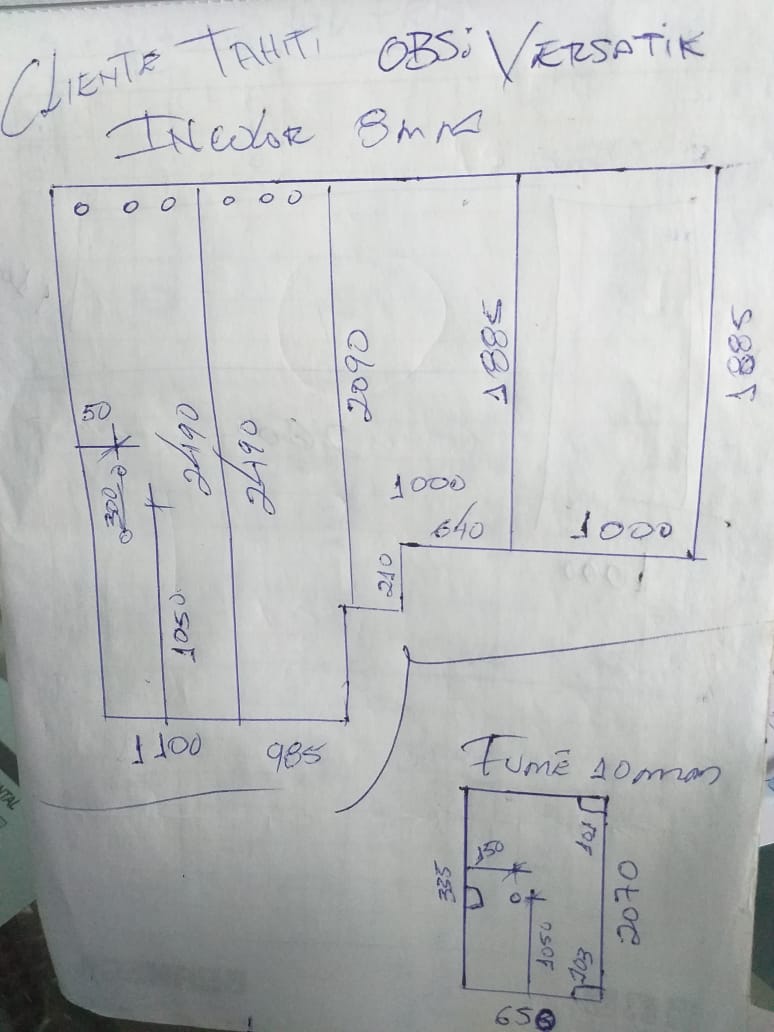 CLIENTE TAHITI OBS: VERSATIK
INCOLOR 8mm
50
300
2490
2490
2090
1885
1885
1000
640
1000
210
1050
1100
985
FUMÊ 10mm
101
50
335
1050
103
2070
650